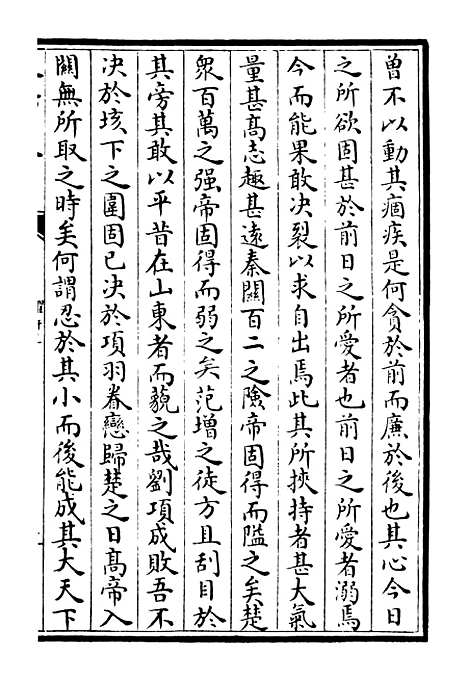 曾不以動其痼疾是何貪於前而廉於後也其心今日
之所欲固甚於前日之所愛者也前日之所愛者溺焉
今而能果敢决裂以求自出焉此其所挾持者甚大氣
量甚髙志趣甚逺秦關百二之險帝固得而隘之矣楚
衆百萬之强帝固得而弱之矣范増之徒方且刮目於
其旁其敢以平昔在山東者而藐之哉劉項成敗吾不
决於垓下之圍固已决於項羽眷戀歸楚之日髙帝入
關無所取之時矣何謂忍於其小而後能成其大天下